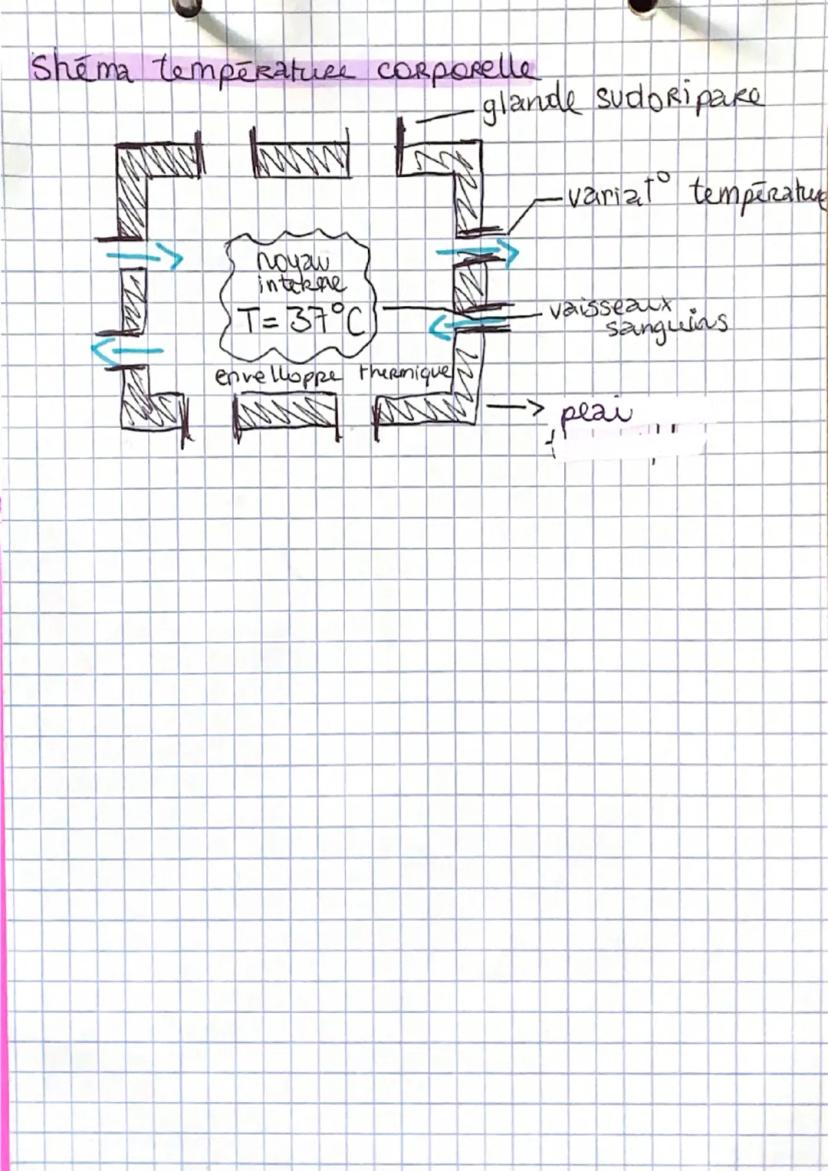 Shéma température corporelle
glande sudoripare
variat° température
noyau
interne
T = 37°C
vaisseaux
sanguins
envelloppe thermique
peau